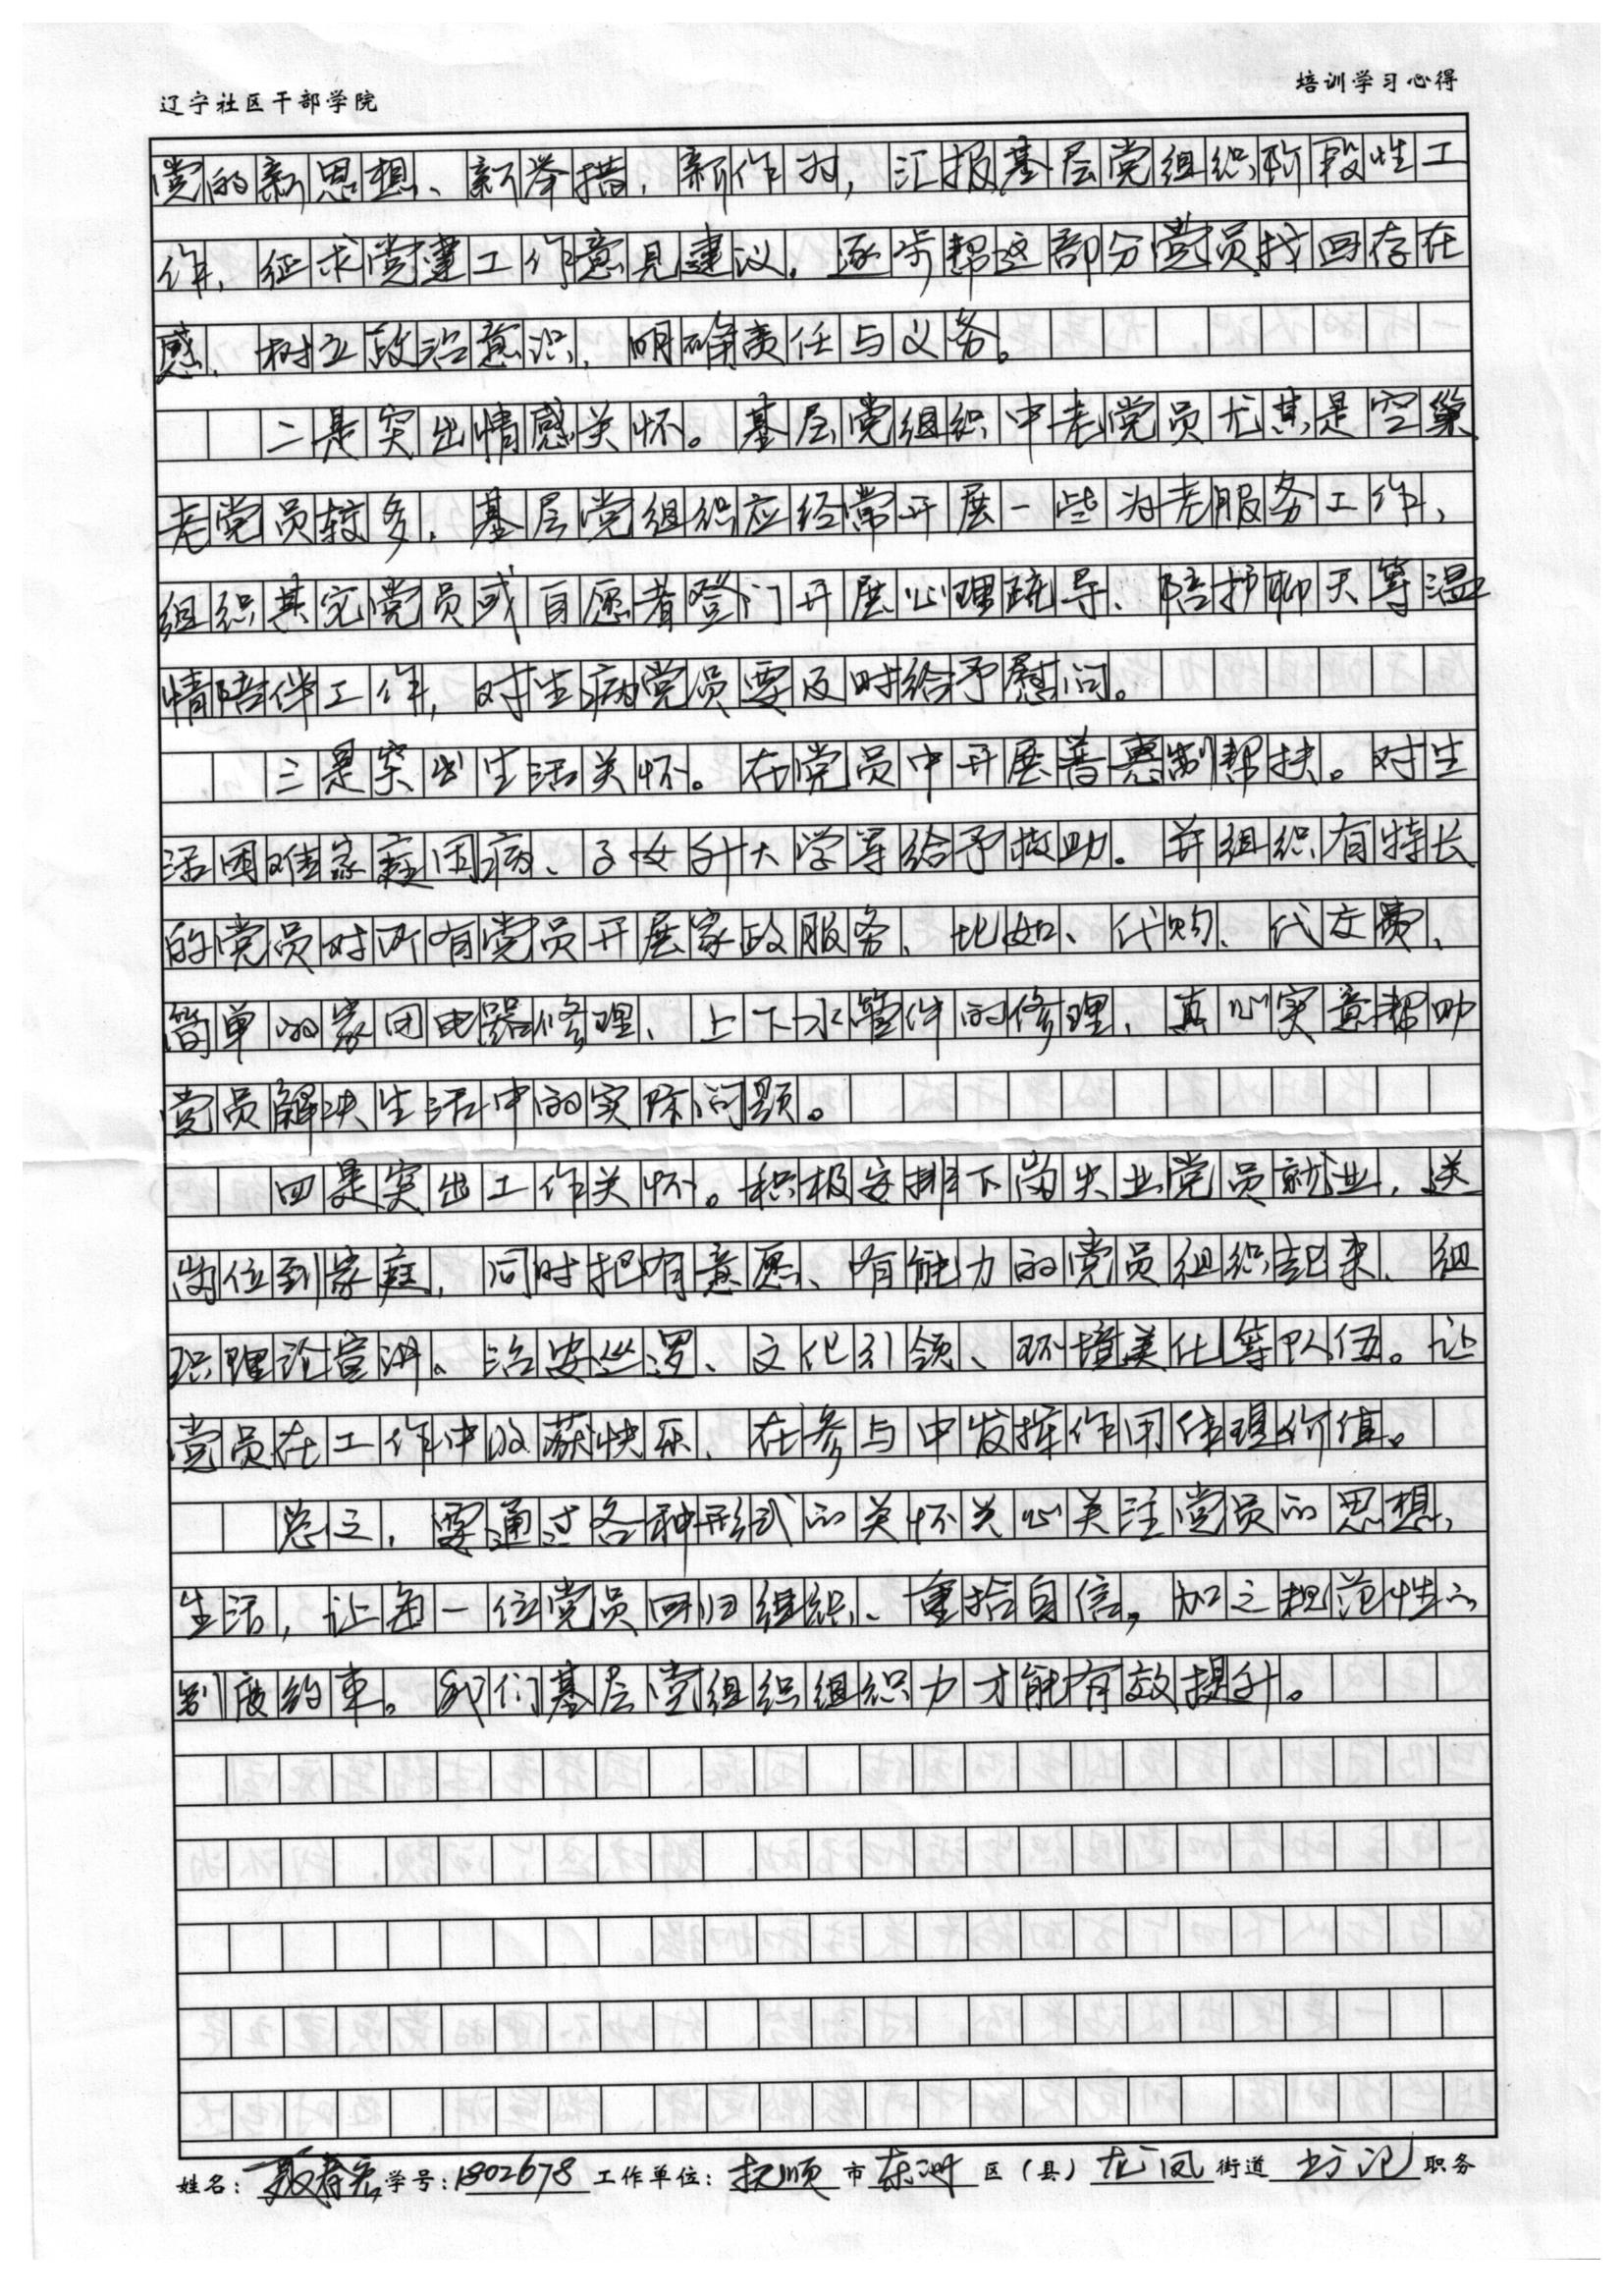 辽宁社区干部学院
培训学习心得
党的新思想、新举措,新作为,汇报基层党组织阶段性工
作,征求党建工作意见建议,逐步帮这部分党员找回存在
感,树立政治意识,明确责任与义务。
二是突出情感关怀。基层党组织中老党员尤其是空巢
老党员较多,基层党组织应经常开展一些为老服务工作,
组织其它党员或自愿者登门开展心理疏导、陪护聊天等温
情陪伴工作,对生病党员要及时给予慰问。
三是突出生活关怀。在党员中开展普惠制帮扶。对生
活困难家庭因病、子女升大学等给予救助。并组织有特长
的党员对所有党员开展家政服务、比如、代购、代交费、
简单的家用电器修理、上下水管件的修理,真心实意帮助
党员解决生活中的实际问题。
四是突出工作关怀。积极安排下岗失业党员就业,送
岗位到家庭,同时把有意愿、有能力的党员组织起来、组
织理论宣讲。治安巡逻、文化引领、环境美化等队伍。让
党员在工作中收获快乐,在参与中发挥作用体现价值。
总之,要通过各种形式的关怀关心关注党员的思想,
生活,让每一位党员回归组织、重拾自信,加之规范性的
制度约束。我们基层党组织组织力才能有效提升。
姓名: 学号:1802678 工作单位:抚顺市东洲区(县)龙凤街道书记职务